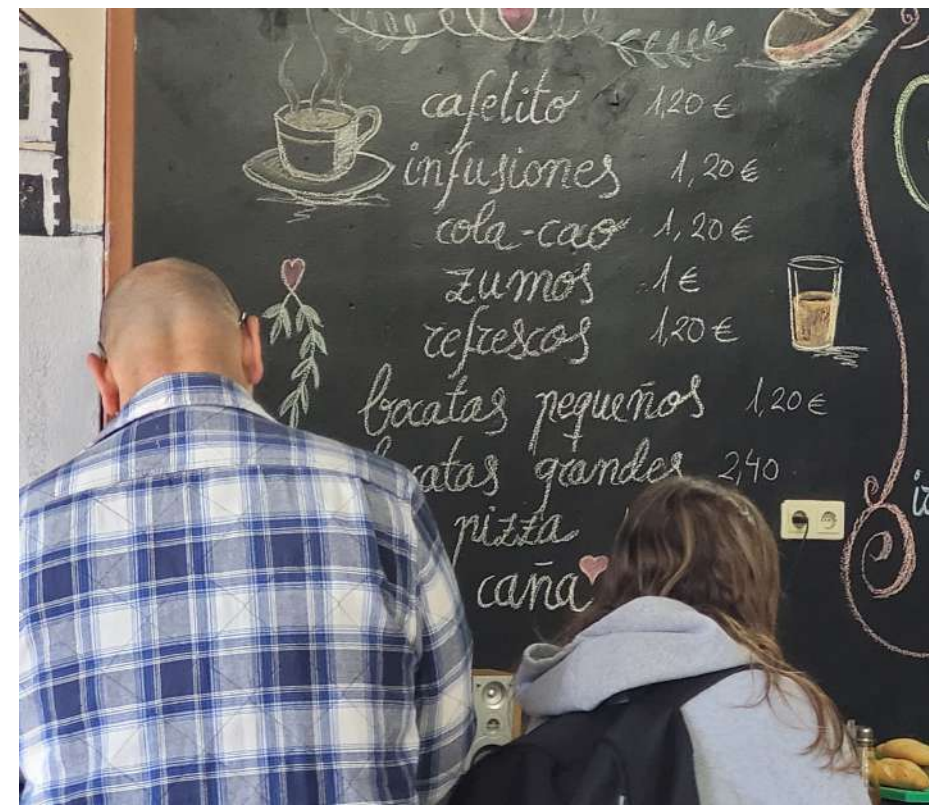 cafelito 1,20 €
infusiones 1,20 €
cola-cao 1,20 €
zumos 1 €
refrescos 1,20 €
bocatas pequeños 1,20 €
catas grandes 2,40
pizza
caña